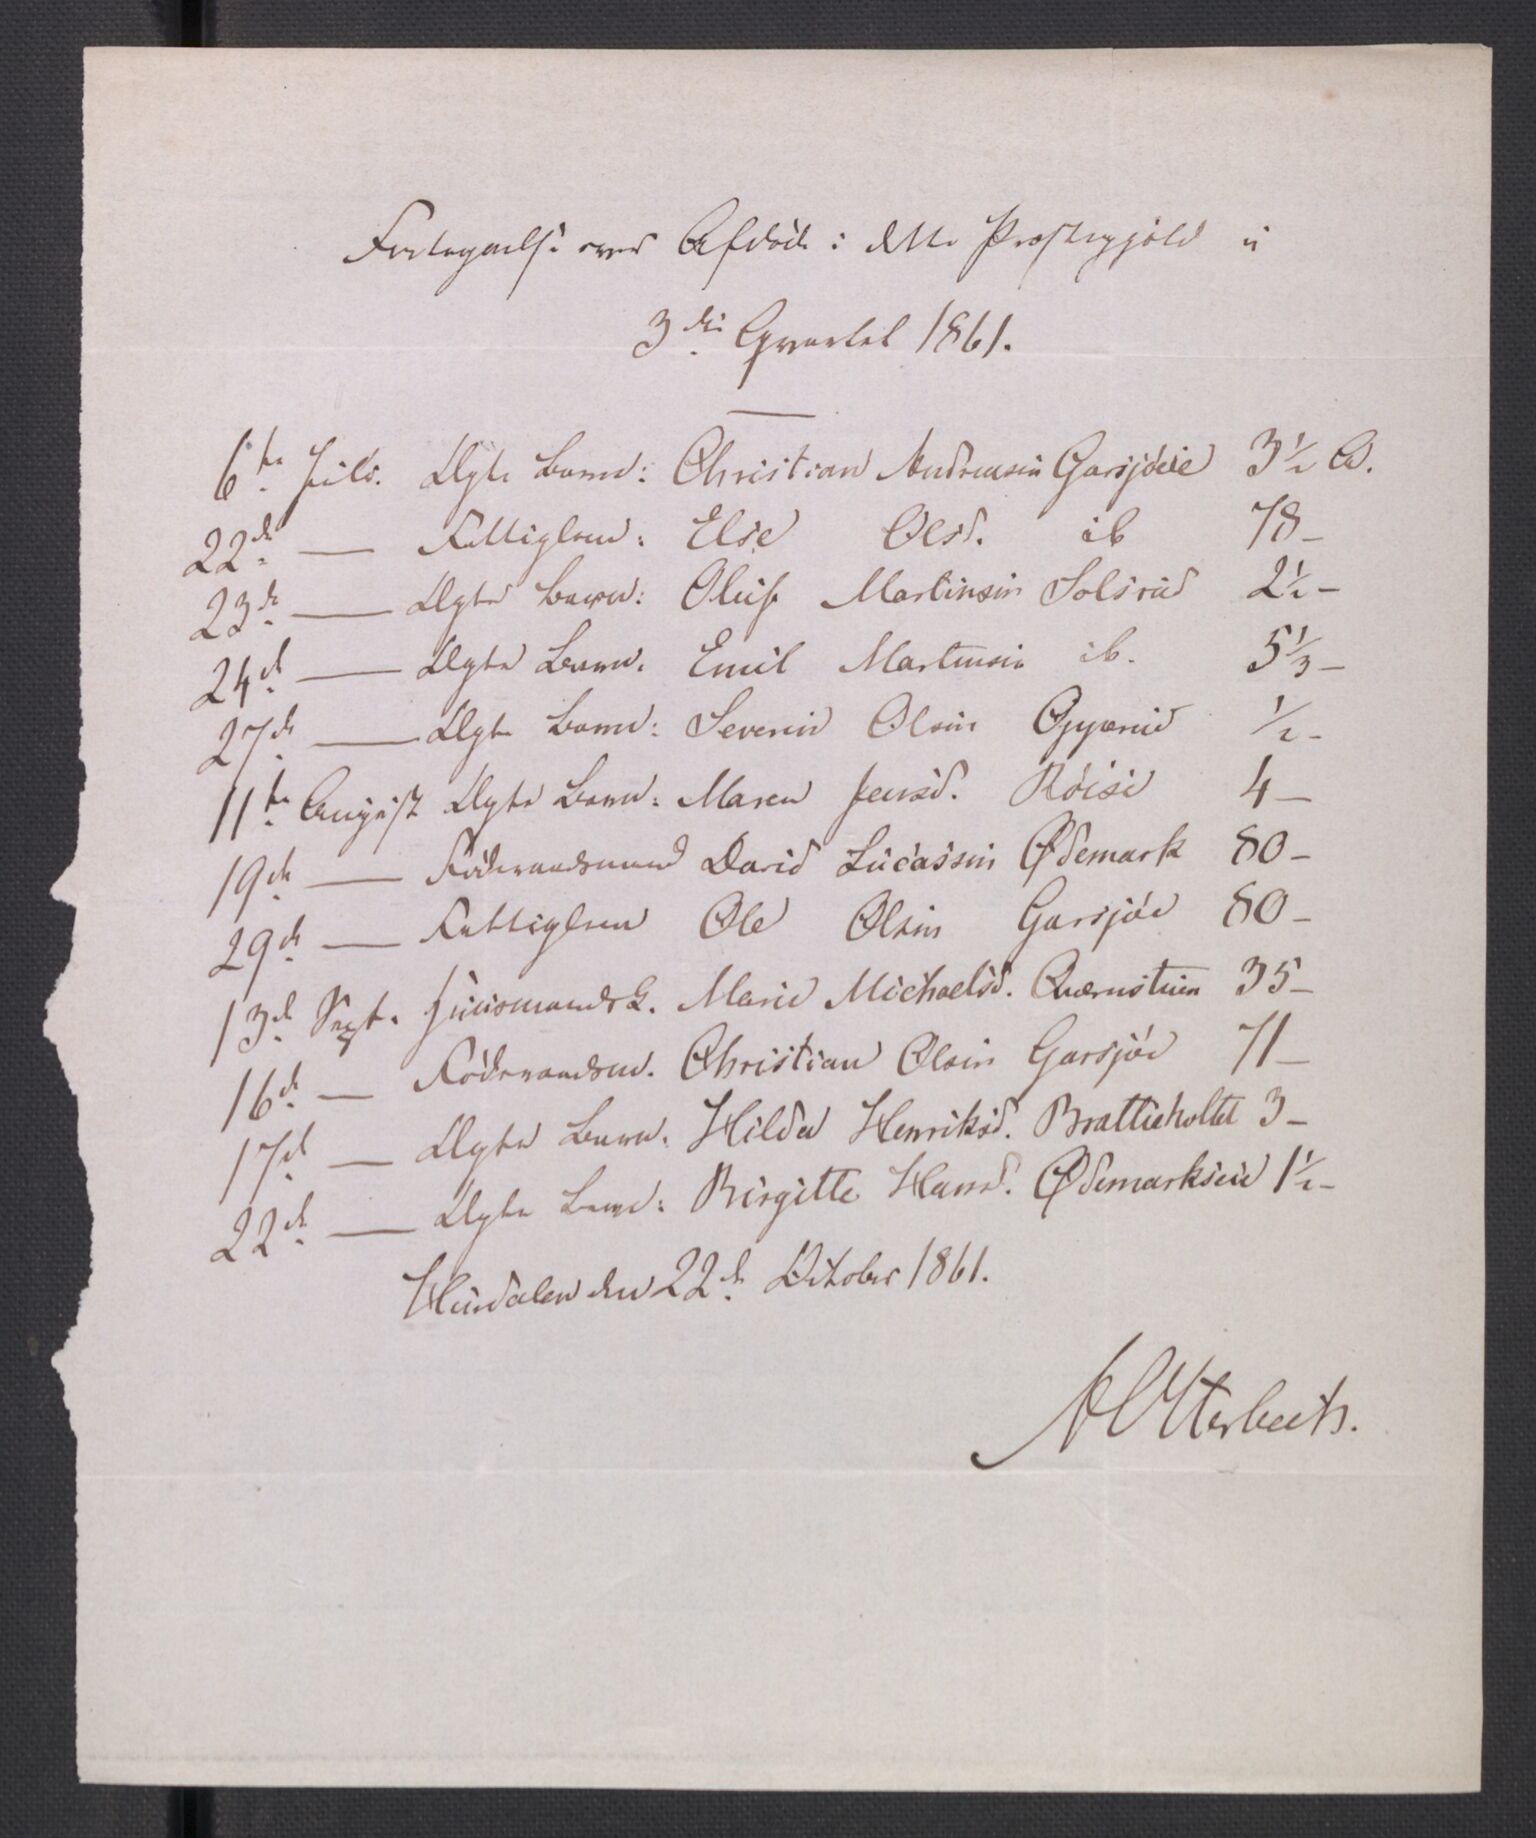 Fortegnelse over Afdøde i dette Præstegjeld i
3die Qvartal 1861.
6te Juli. Ægte Barn: Christian Andreasen Garsjøeie 3½ A.
22de — Fattiglem: Else Olsd. ib 78 –
23de — Ægte Barn: Oluf Martinsen Solsrud 2½ –
24de — Ægte Barn. Emil Martinsen ib. 5⅓ –
27de — Ægte Barn: Severin Olsen ½ –
11te August Ægte Barn: Maren Jensd. Røise 4 –
19de — Føderaadsmand David Lucassen Ødemark 80 –
29de — Fattiglem Ole Olsen Garsjøe 80 –
13de Sept. Huusmands K. Marie Michaelsd. Quærnstuen 35 –
16de — Føderaadsm. Christian Olsen Garsjøe 71 –
17de — Ægte Barn. Hilda Henriksd. Brattieholtet 3 –
22de — Ægte Barn: Birgitte Hansd. Ødemarkseie 1½ –
Hurdalen den 22de October 1861.
A Otterbech.